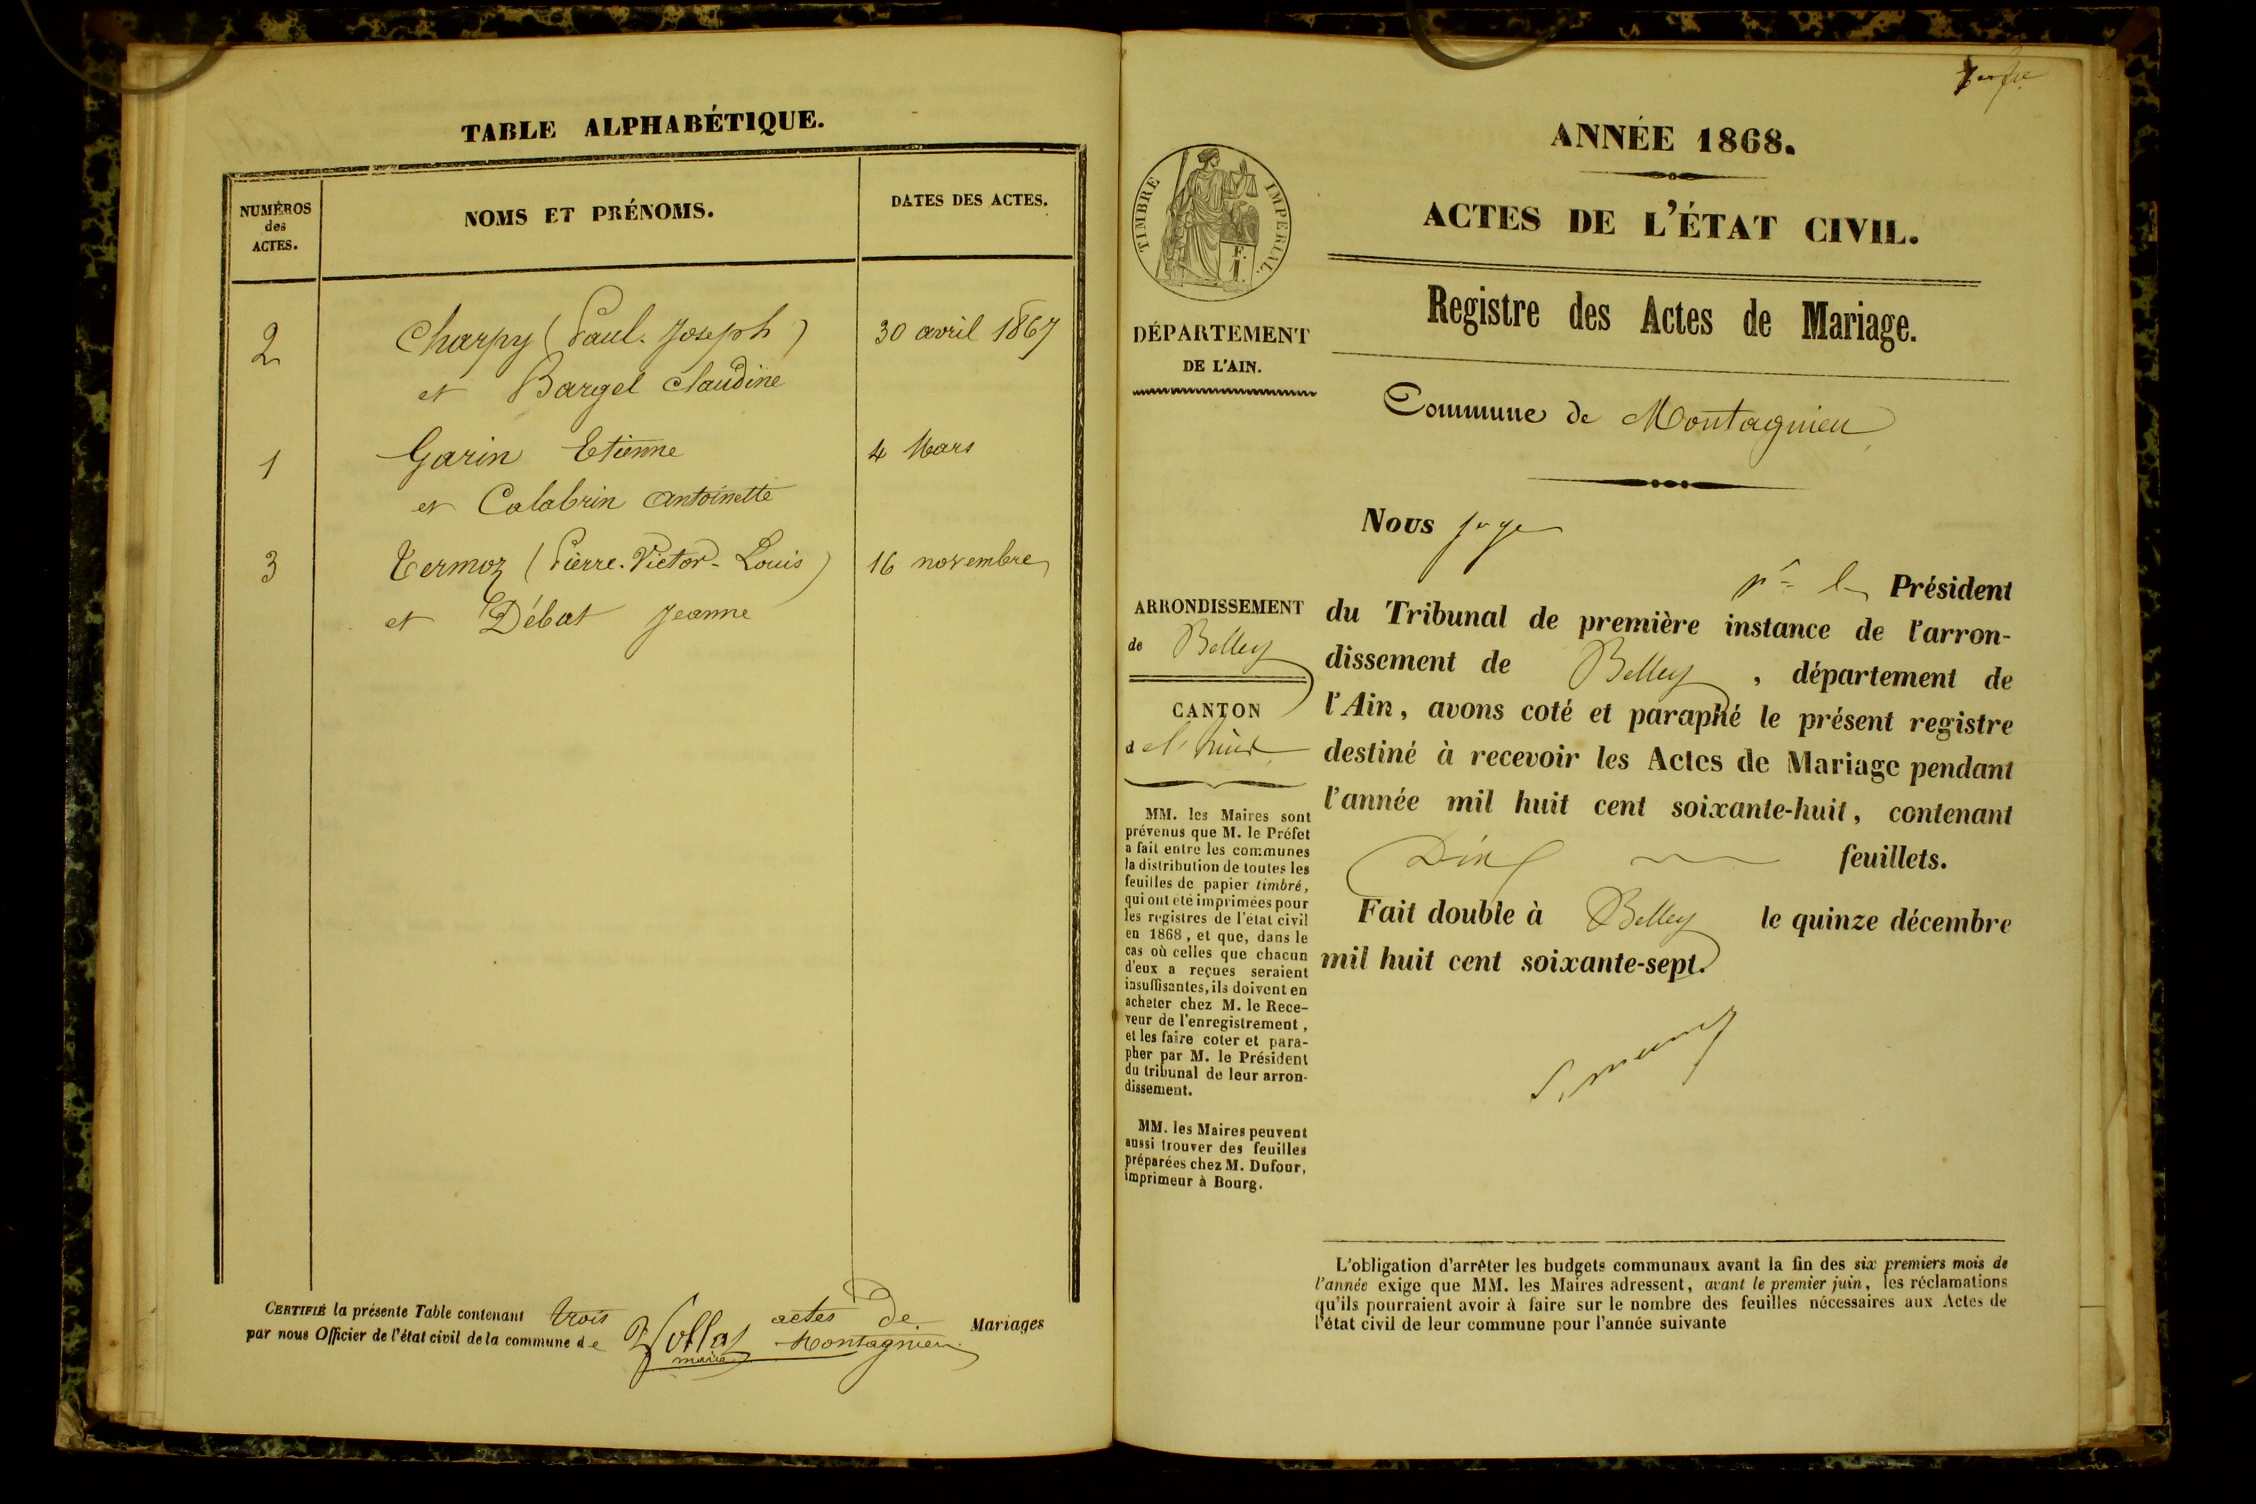 TABLE ALPHABÉTIQUE.
NUMÉROS
des
ACTES.
NOMS ET PRÉNOMS.
DATES DES ACTES.
2 Charpy (Paul-Joseph) 30 avril 1867
et Bargel Claudine
1 Garin Etienne 4 Mars
et Calabrin Antoinette
3 Termoz (Pierre-Victor-Louis) 16 novembre
et Débat Jeanne
CERTIFIÉ la présente Table contenant trois actes de Mariages
par nous Officier de l'état civil de la commune de Montagnieu
maire
ANNÉE 1868.
ACTES DE L'ÉTAT CIVIL.
Registre des Actes de Mariage.
Commune de Montagnieu
TIMBRE IMPERIAL.
F.
1
DÉPARTEMENT
DE L'AIN.
ARRONDISSEMENT
de Belley
CANTON
d
MM. les Maires sont
prévenus que M. le Préfet
a fait entre les communes
la distribution de toutes les
feuilles de papier timbré,
qui ont été imprimées pour
les registres de l'état civil
en 1868, et que, dans le
cas où celles que chacun
d'eux a reçues seraient
insuffisantes, ils doivent en
acheter chez M. le Rece-
veur de l'enregistrement,
et les faire coter et para-
pher par M. le Président
du tribunal de leur arron-
dissement.
MM. les Maires peuvent
aussi trouver des feuilles
préparées chez M. Dufour,
imprimeur à Bourg.
Nous juge
pr le Président
du Tribunal de première instance de l'arron-
dissement de Belley, département de
l'Ain, avons coté et paraphé le présent registre
destiné à recevoir les Actes de Mariage pendant
l'année mil huit cent soixante-huit, contenant
Dix feuillets.
Fait double à Belley le quinze décembre
mil huit cent soixante-sept.
L'obligation d'arrêter les budgets communaux avant la fin des six premiers mois de
l'année exige que MM. les Maires adressent, avant le premier juin, les réclamations
qu'ils pourraient avoir à faire sur le nombre des feuilles nécessaires aux Actes de
l'état civil de leur commune pour l'année suivante